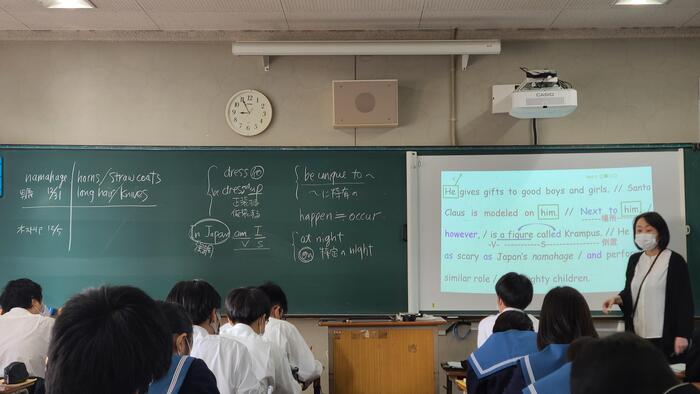 namahage horns/straw coats
12/31 long hair/knives
12/5
dress
be dressed up
正装する
仮装する
In Japan am I
V S
be unique to ～
～に特有の
happen = occur
at night
on 特定の night
CASIO
He gives gifts to good boys and girls. // Santa
Claus is modeled on him. // Next to him,
場所
however, / is a figure called Krampus. // He
-V- S 倒置
as scary as Japan's namahage / and perfo
similar role / ghty children.